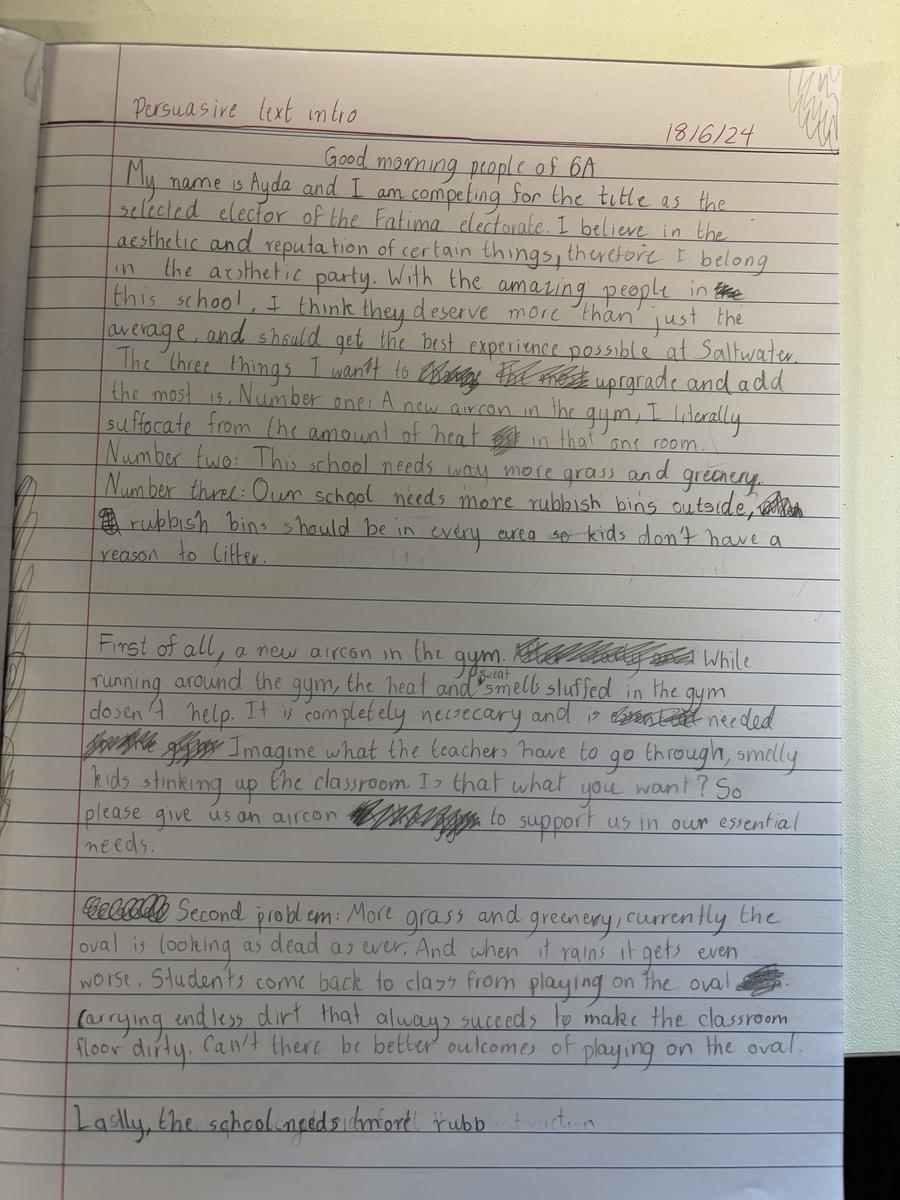 Persuasive text intro
18/6/24
Good morning people of 6A
My name is Ayda and I am competing for the title as the
selected elector of the Fatima electorate. I believe in the
aesthetic and reputation of certain things, therefore I belong
in the aesthetic party. With the amazing people in
this school, I think they deserve more than just the
average, and should get the best experience possible at Saltwater.
The three things I wan't to uprgrade and add
the most is: Number one: A new aircon in the gym, I literally
suffocate from the amount of heat in that one room.
Number two: This school needs way more grass and greenery.
Number three: Our school needs more rubbish bins outside,
rubbish bins should be in every area so kids don't have a
reason to litter.
First of all, a new aircon in the gym. While
running around the gym, the heat and sweat smells stuffed in the gym
dosen't help. It is completely necsecary and is needed
Imagine what the teachers have to go through, smelly
kids stinking up the classroom. Is that what you want? So
please give us an aircon to support us in our essential
needs.
Second problem: More grass and greenery, currently the
oval is looking as dead as ever. And when it rains it gets even
worse. Students come back to class from playing on the oval
carrying endless dirt that always suceeds to make the classroom
floor dirty. Can't there be better outcomes of playing on the oval.
Lastly, the school needs more rubb